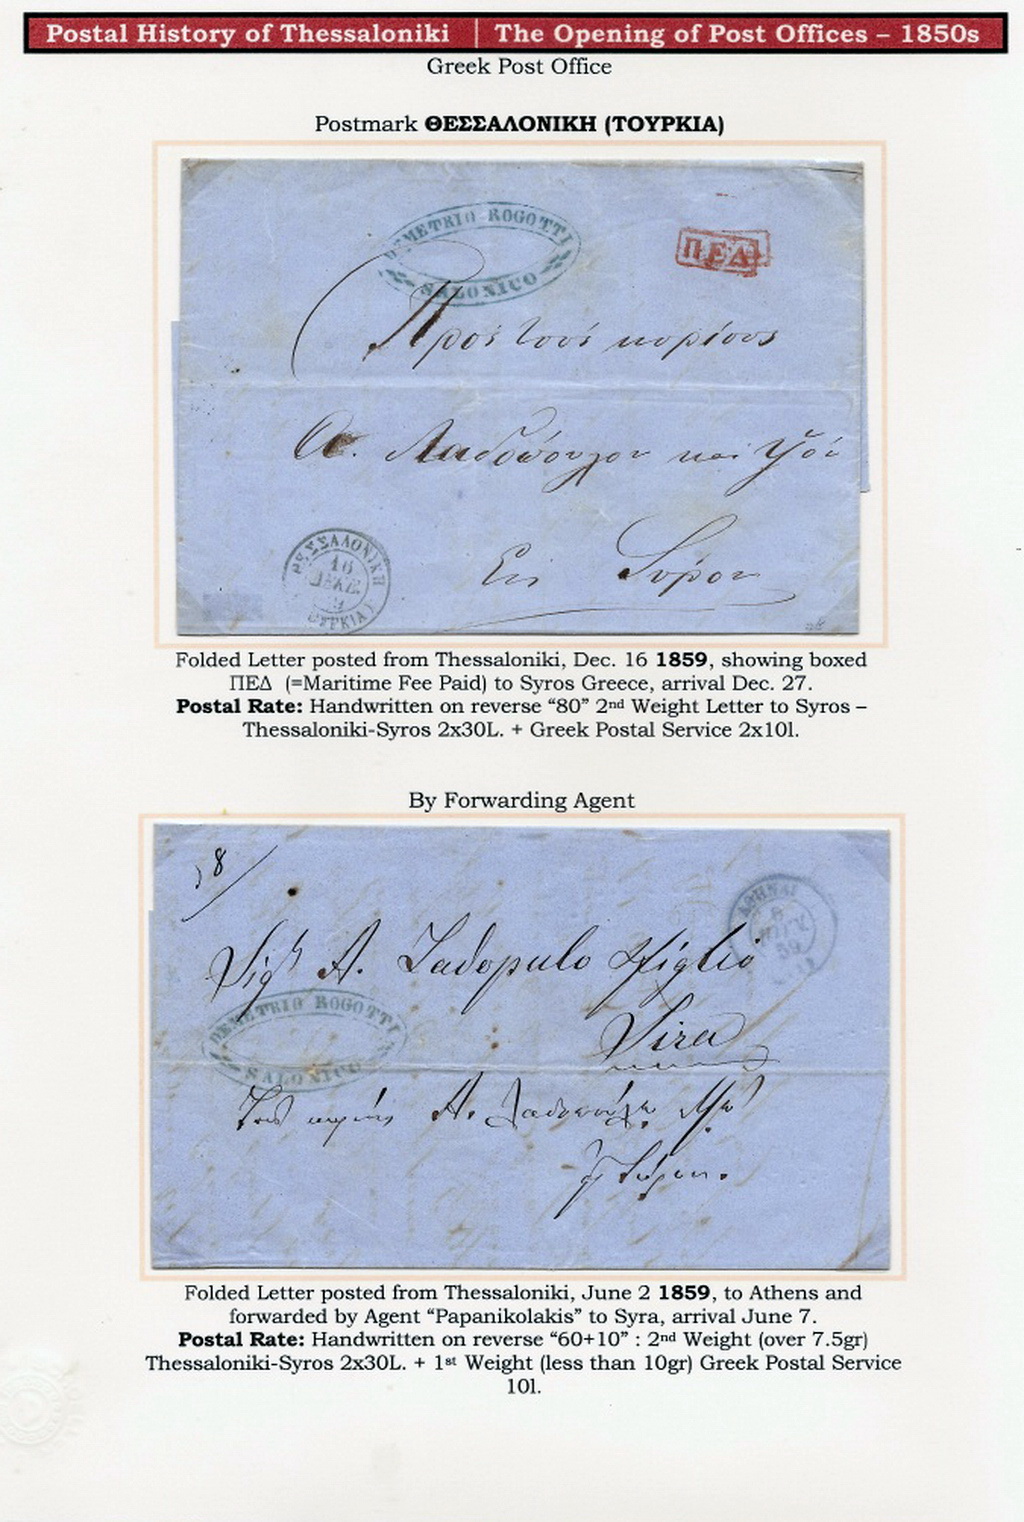 Postal History of Thessaloniki | The Opening of Post Offices – 1850s
Greek Post Office
Postmark ΘΕΣΣΑΛΟΝΙΚΗ (ΤΟΥΡΚΙΑ)
DEMETRIO ROGOTTI
SALONICO
ΠΕΔ
Προς τους κυρίους
Α. Λαδόπουλον και
Εις Σύρον
ΘΕΣΣΑΛΟΝΙΚΗ
16
ΔΕΚΕ.
(ΤΟΥΡΚΙΑ)
Folded Letter posted from Thessaloniki, Dec. 16 1859, showing boxed
ΠΕΔ (=Maritime Fee Paid) to Syros Greece, arrival Dec. 27.
Postal Rate: Handwritten on reverse “80” 2nd Weight Letter to Syros –
Thessaloniki-Syros 2x30L. + Greek Postal Service 2x10l.
By Forwarding Agent
8
ΑΘΗΝΑΙ
59
Sigri A. Ladopulo & figlio
Sira
DEMETRIO ROGOTTI
SALONICO
Α.
Folded Letter posted from Thessaloniki, June 2 1859, to Athens and
forwarded by Agent “Papanikolakis” to Syra, arrival June 7.
Postal Rate: Handwritten on reverse “60+10” : 2nd Weight (over 7.5gr)
Thessaloniki-Syros 2x30L. + 1st Weight (less than 10gr) Greek Postal Service
10l.